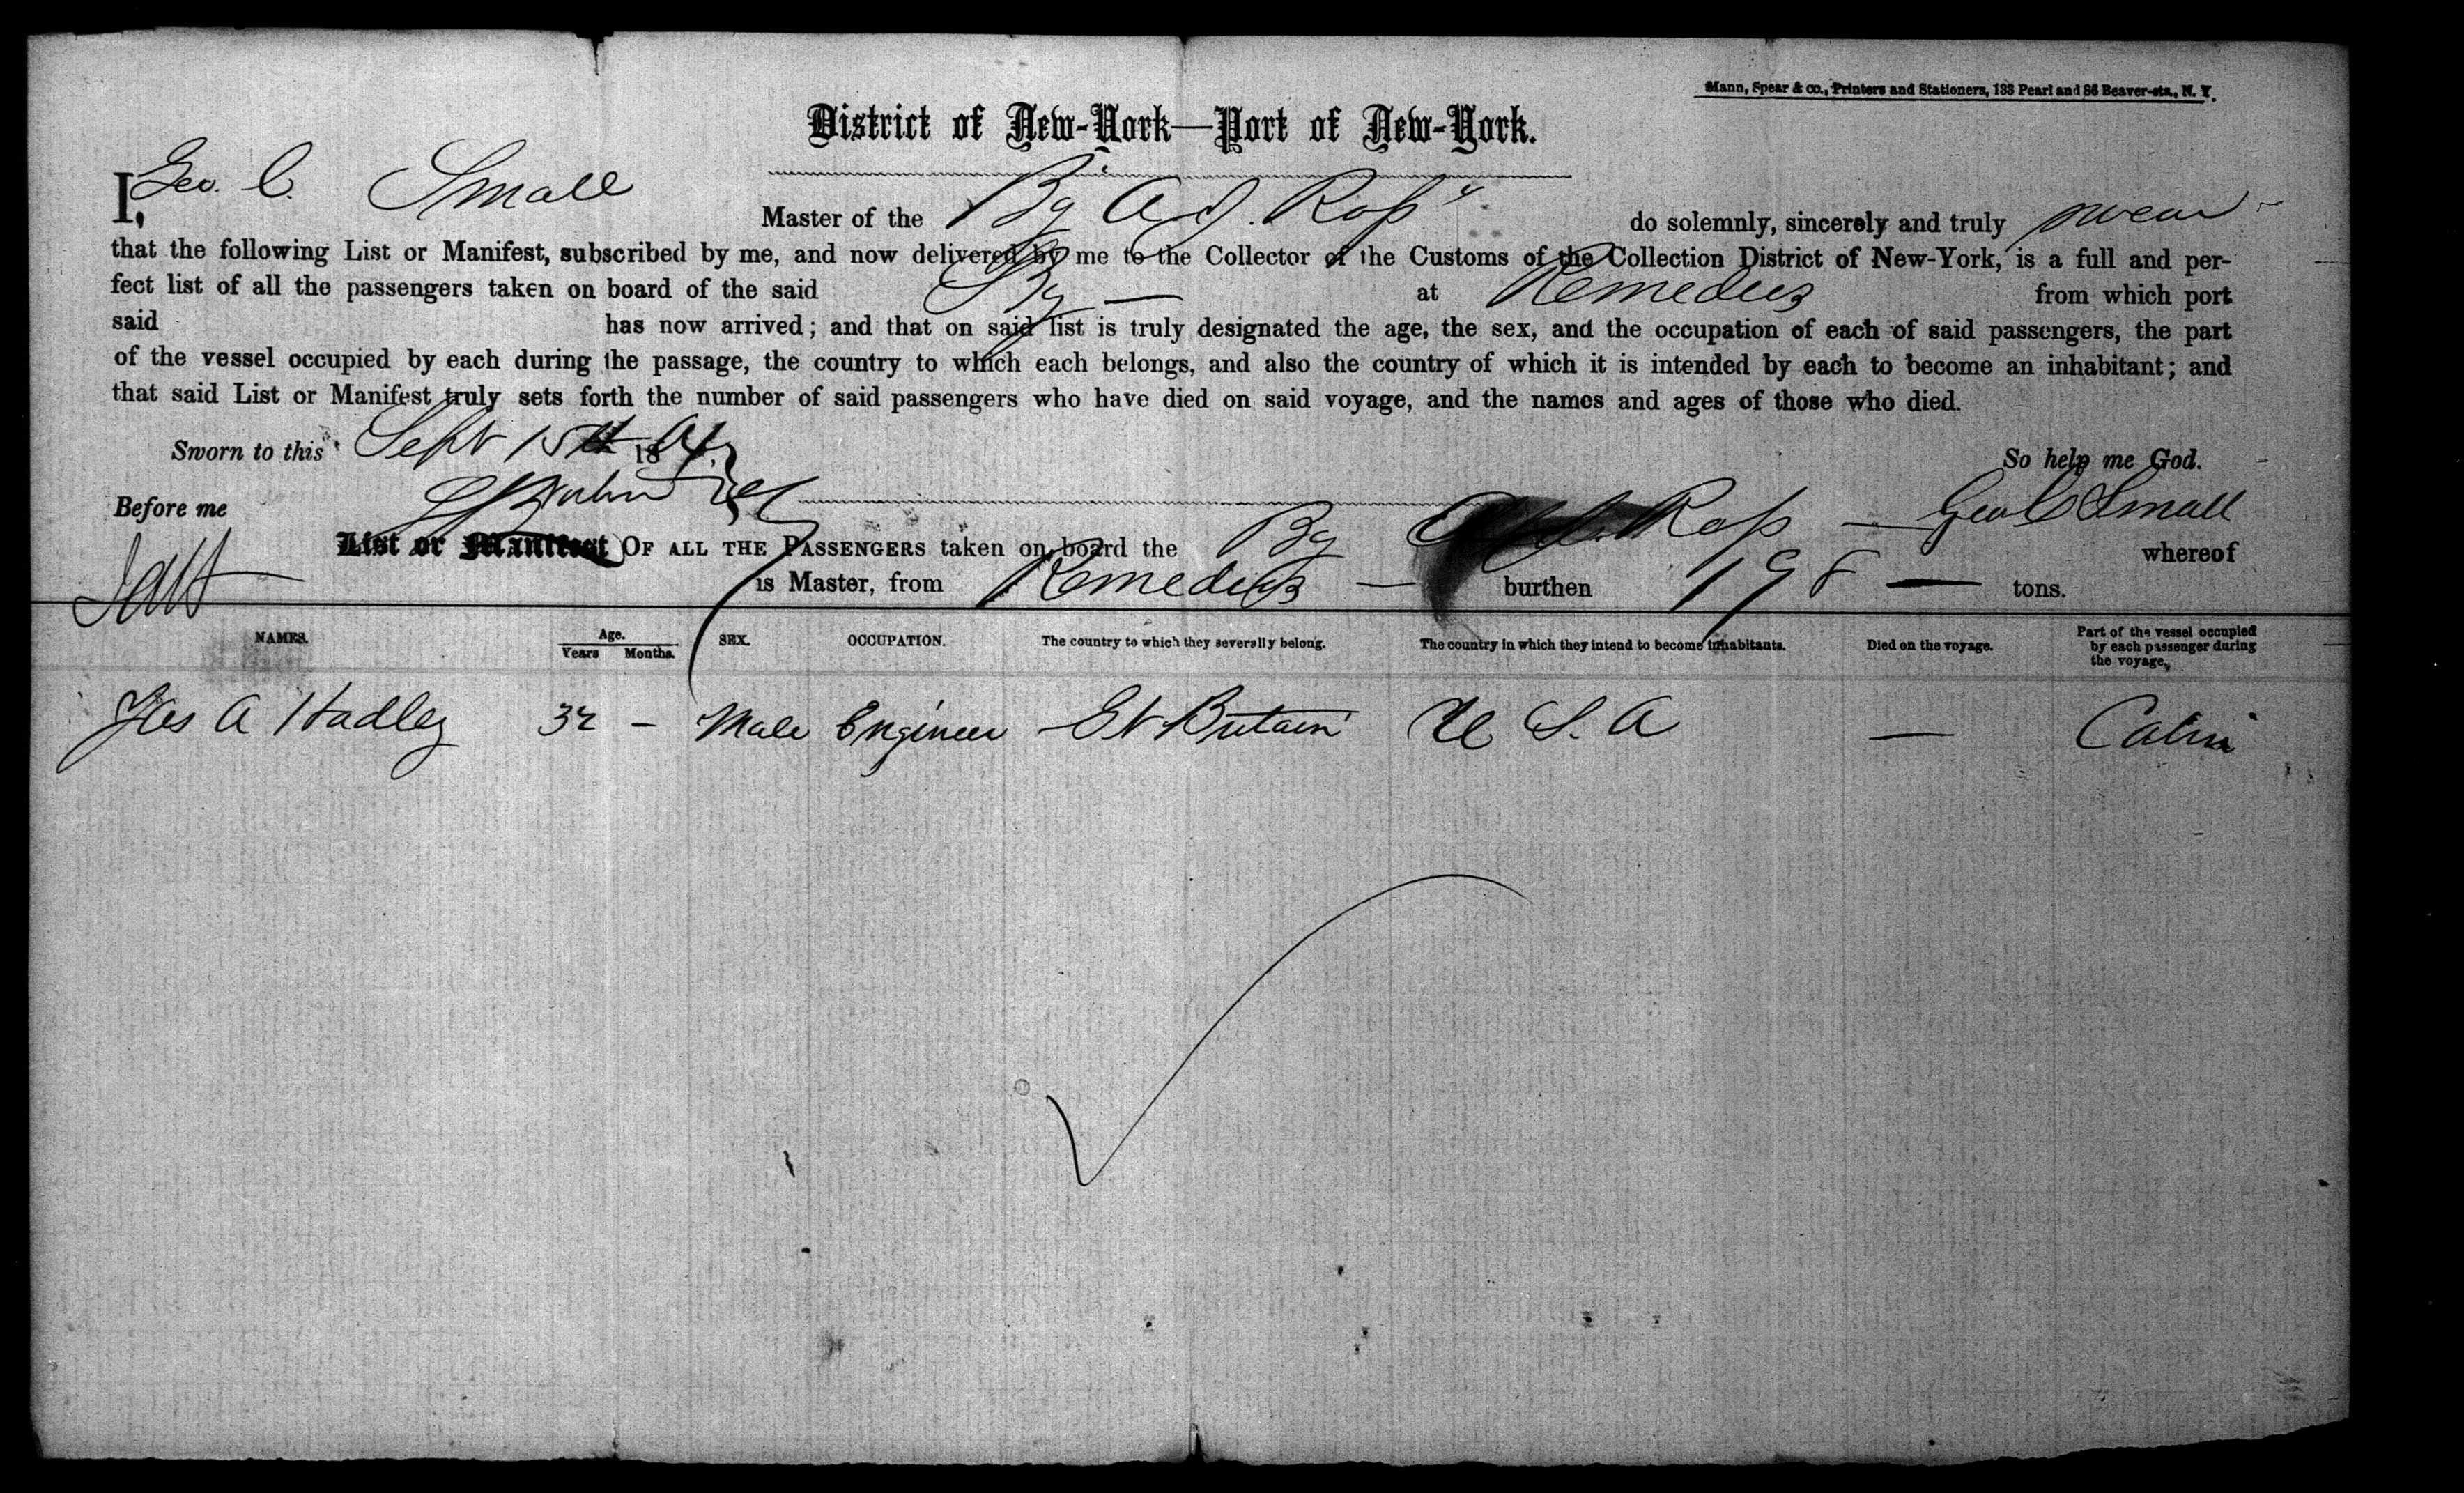 Mann, Spear & co., Printers and Stationers, 133 Pearl and 86 Beaver-sts., N. Y.
District of New-York—Port of New-York.
I, Geo. C. Small Master of the Bg "A. J. Ross" do solemnly, sincerely and truly swear
that the following List or Manifest, subscribed by me, and now delivered by me to the Collector of the Customs of the Collection District of New-York, is a full and per-
fect list of all the passengers taken on board of the said Bg — at Remedios from which port
said has now arrived; and that on said list is truly designated the age, the sex, and the occupation of each of said passengers, the part
of the vessel occupied by each during the passage, the country to which each belongs, and also the country of which it is intended by each to become an inhabitant; and
that said List or Manifest truly sets forth the number of said passengers who have died on said voyage, and the names and ages of those who died.
Sworn to this Sept 15th 18 So help me God.
Before me Geo C Small
List or Manifest OF ALL THE PASSENGERS taken on board the Bg Ross — whereof
is Master, from Remedios — burthen 198 — tons.
NAMES. Age. Years Months. SEX. OCCUPATION. The country to which they severally belong. The country in which they intend to become inhabitants. Died on the voyage. Part of the vessel occupied by each passenger during the voyage.
Jas A Hadley 32 — Male Engineer Gt Britain U S. A — Cabin